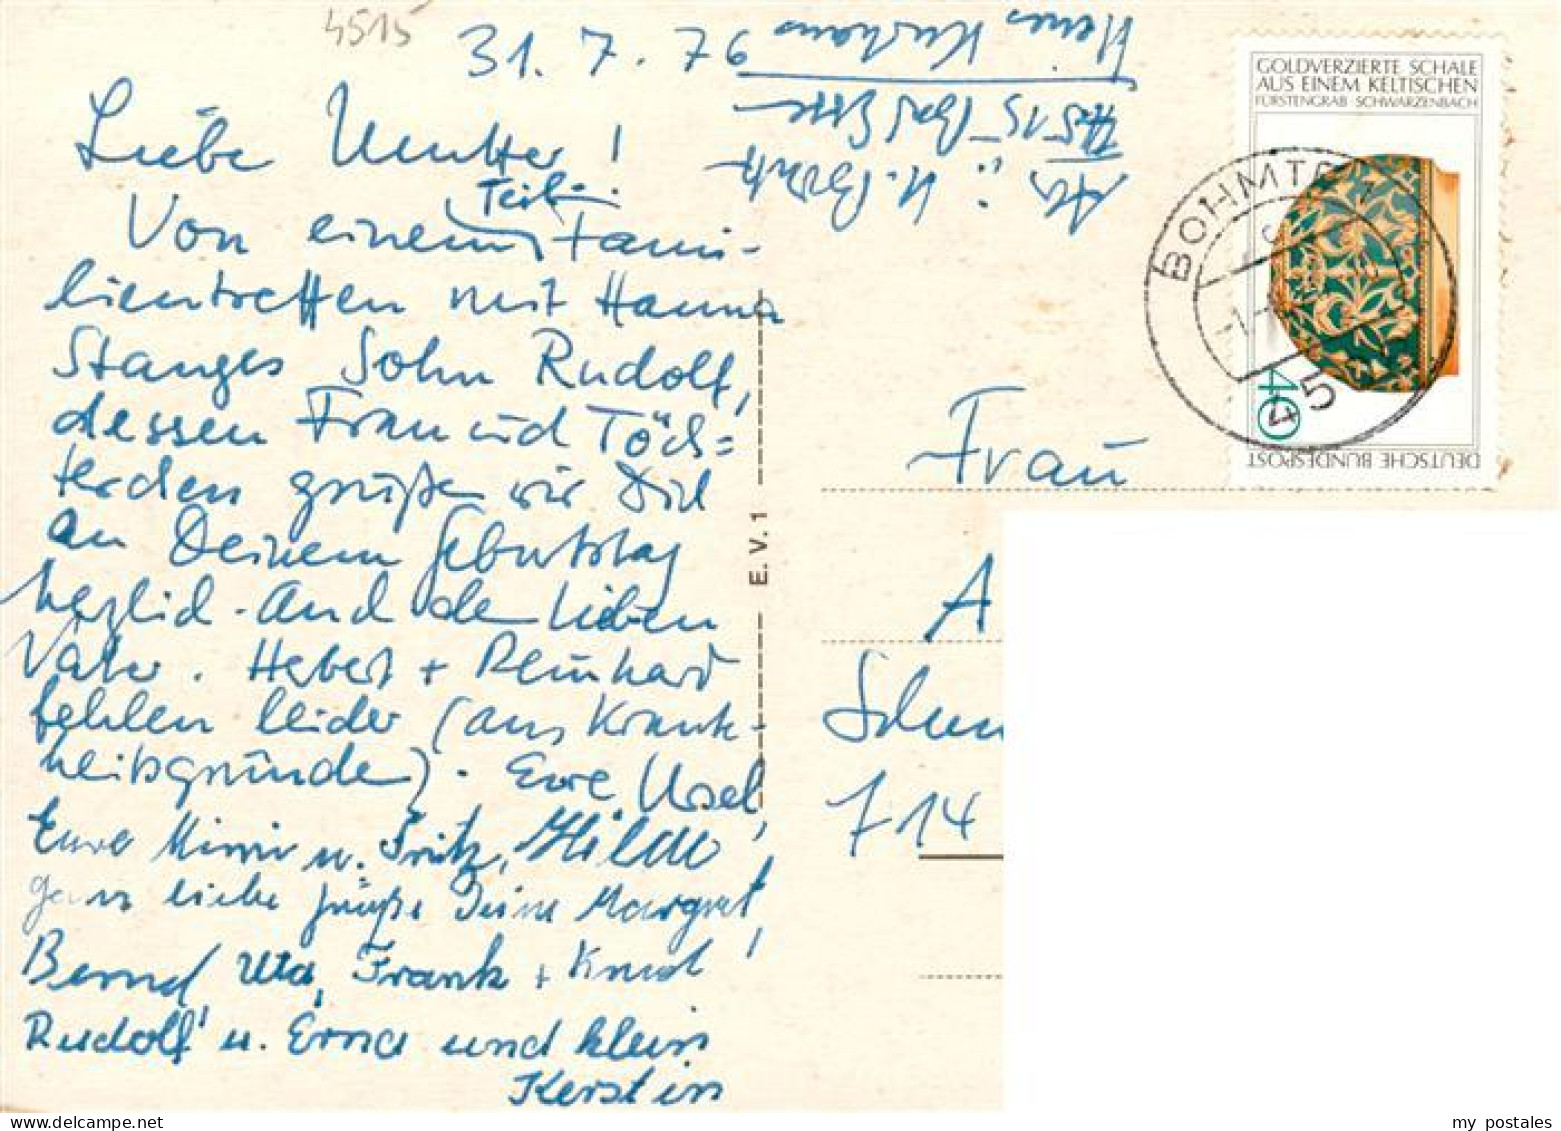 4515
31. 7. 76
Liebe Mutter!
Von einem Teil-Fami-
lientreffen mit Hanna
Stanges Sohn Rudolf,
dessen Frau und Töch=
terchen grüßen wir Dich
an Deinem Geburtstag
herzlich. Auch de lieben
Vater. Hebert + Reinhard
fehlen leider (aus Krank-
heitsgründe). Eure Ursel,
Eure Mimi u. Fritz, Hilde
ganz liebe Grüße Deine Margret,
Bernd, Uta, Frank + Knud
Rudolf u. Erna und klein
Kerstin
Abs. ü. H.
4515 Bad Essen
Haus Kurhaus
GOLDVERZIERTE SCHALE
AUS EINEM KELTISCHEN
FÜRSTENGRAB · SCHWARZENBACH
40
DEUTSCHE BUNDESPOST
BOHMTE 1
45
E. V. 1
Frau
A
714
my postales